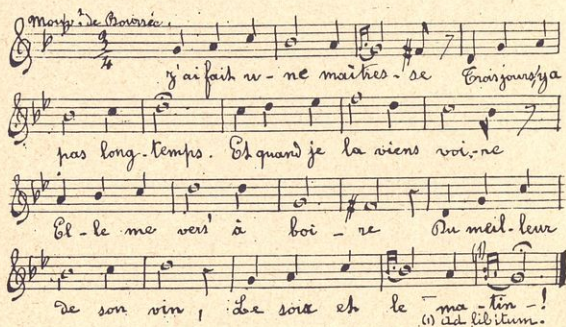 Mouvt de Bourrée.
3
4
J'ai fait u-ne maîtres-se Trois jours y'a
pas long-temps. Et quand je la viens voi-re
El-le me vers' à boi-re Du meil-leur
(1)
de son vin, Le soir et le ma-tin-!
(1) ad libitum.